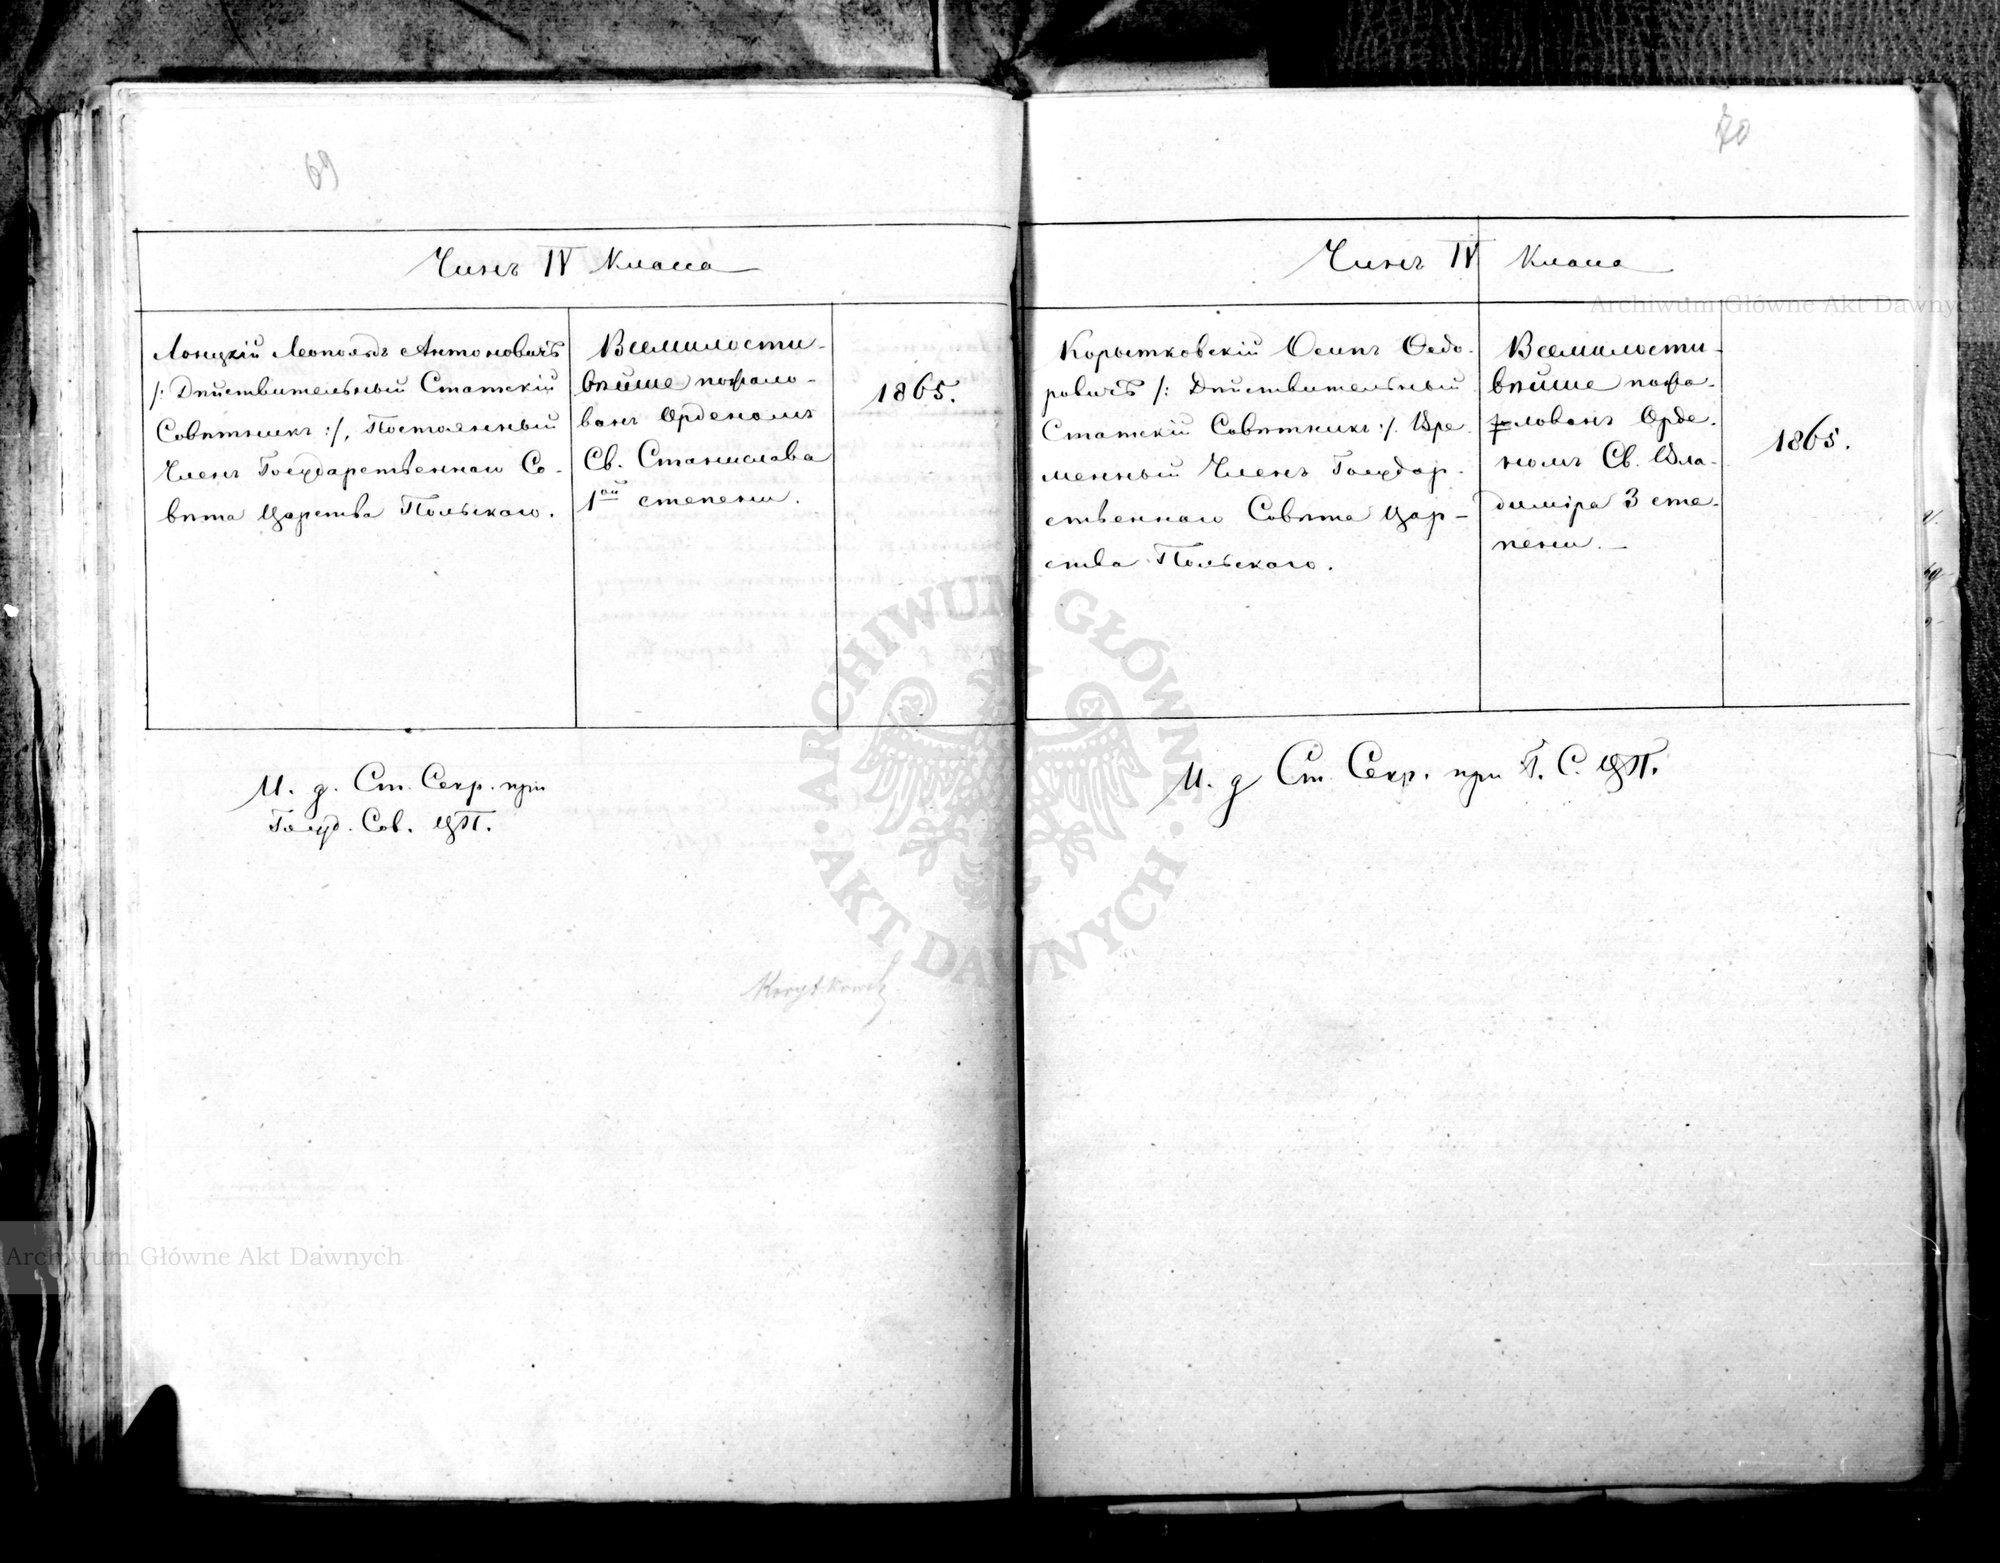 69
Чинъ IV Класса
Лоницкій Леопольдъ Антоновичъ
/: Дѣйствительный Статскій
Совѣтникъ :/, Постоянный
Членъ Государственнаго Со-
вѣта Царства Польскаго.
Всемилости-
вѣйше пожало-
ванъ Орденомъ
Св. Станислава
1ой степени.
1865.
И. д. Ст. Секр. при
Госуд. Сов. ЦП.
70
Чинъ IV Класса
Корытковскій Осипъ Ѳедо-
ровичъ /: Дѣйствительный
Статскій Совѣтникъ :/. Вре-
менный Членъ Государ-
ственнаго Совѣта Цар-
ства Польскаго.
Всемилости-
вѣйше пожа-
лованъ Орде-
номъ Св. Вла-
диміра 3 сте-
пени.—
1865.
И. д Ст. Секр. при Г. С. ЦП.
Archiwum Główne Akt Dawnych
ARCHIWUM GŁÓWNE
AKT DAWNYCH
Archiwum Główne Akt Dawnych